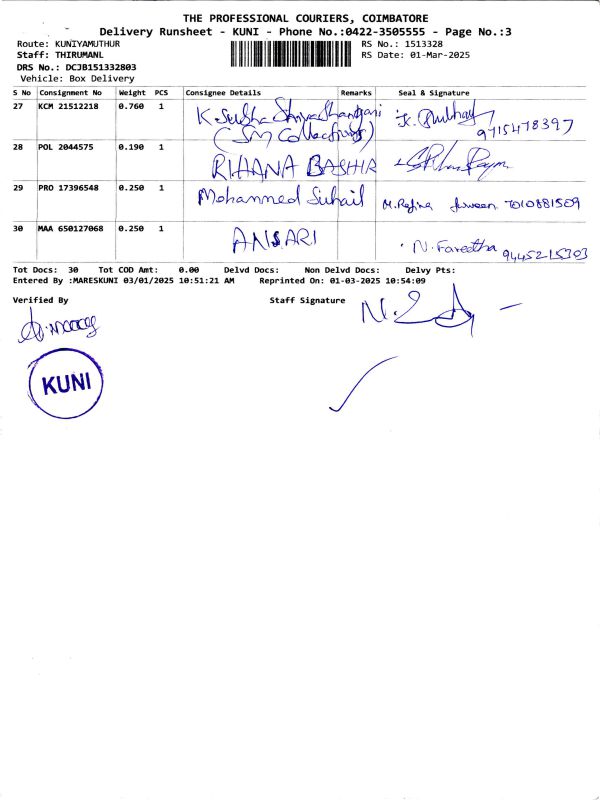 THE PROFESSIONAL COURIERS, COIMBATORE
Delivery Runsheet - KUNI - Phone No.:0422-3505555 - Page No.:3
Route: KUNIYAMUTHUR RS No.: 1513328
Staff: THIRUMANL RS Date: 01-Mar-2025
DRS No.: DCJB151332803
Vehicle: Box Delivery
S No Consignment No Weight PCS Consignee Details Remarks Seal & Signature
27 KCM 21512218 0.760 1 K Subha
(SM Collections) 9715478397
28 POL 2044575 0.190 1 RIHANA BASHIR
29 PRO 17396548 0.250 1 Mohammed Suhail M. 7010881509
30 MAA 650127068 0.250 1 ANSARI N. Fareetha 9445215303
Tot Docs: 30 Tot COD Amt: 0.00 Delvd Docs: Non Delvd Docs: Delvy Pts:
Entered By :MARESKUNI 03/01/2025 10:51:21 AM Reprinted On: 01-03-2025 10:54:09
Verified By Staff Signature
KUNI